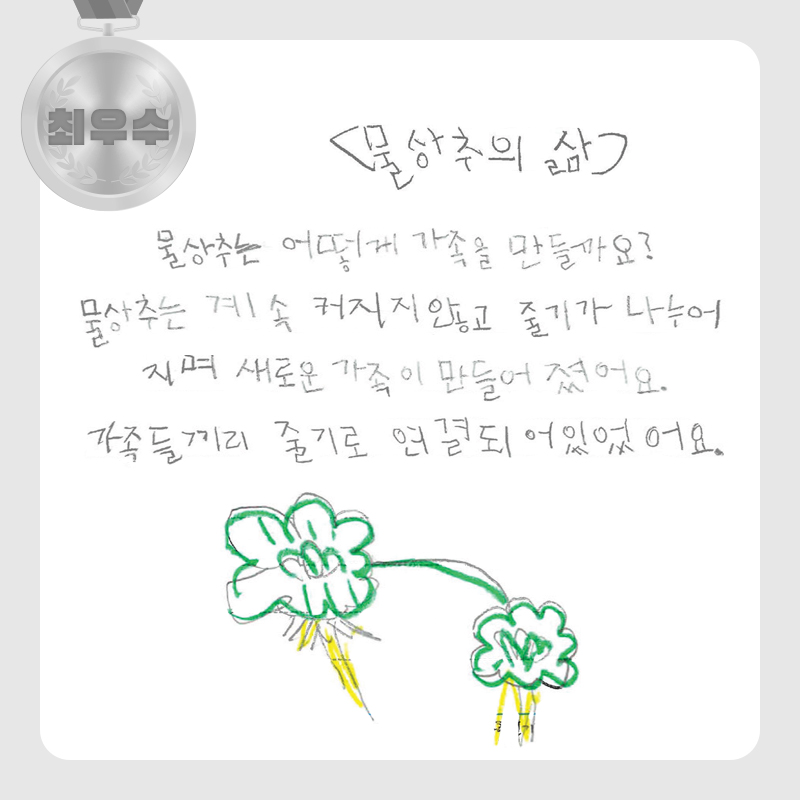 최우수
<물상추의 삶>
물상추는 어떻게 가족을 만들까요?
물상추는 계속 커지지않고 줄기가 나누어
지며 새로운 가족이 만들어 졌어요.
가족들끼리 줄기로 연결되어있었어요.